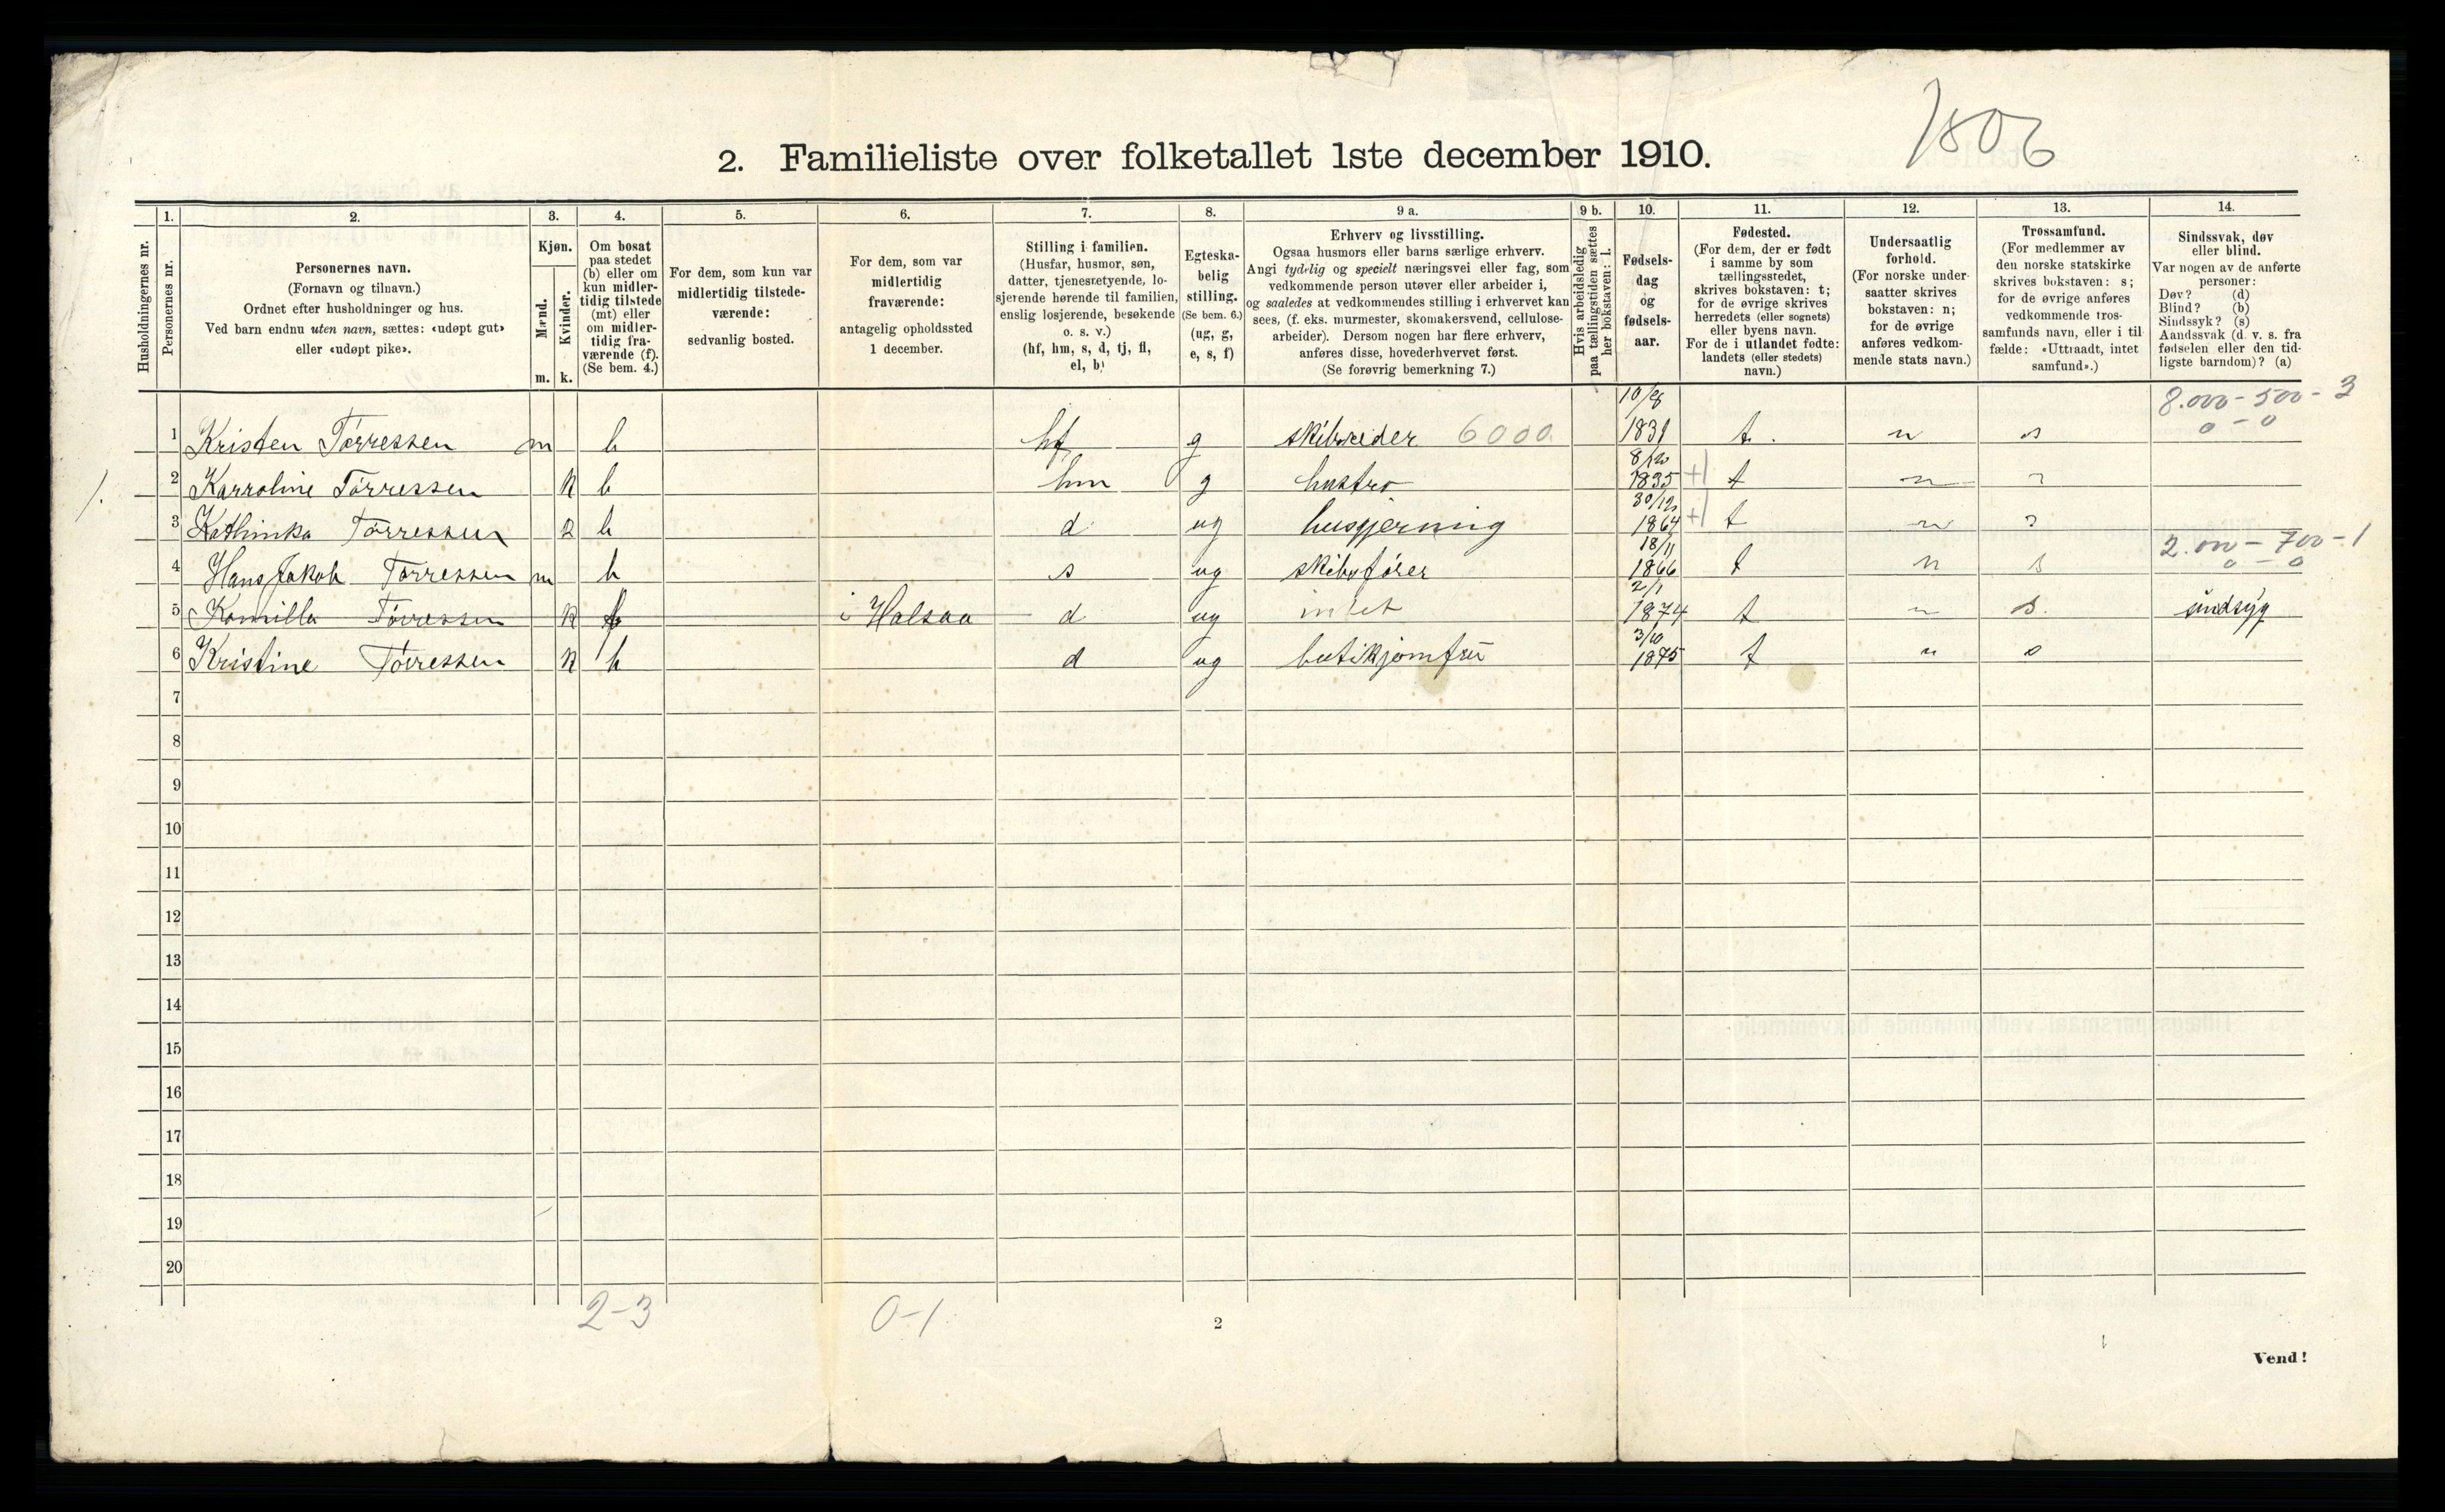 1806
2. Familieliste over folketallet 1ste december 1910.
1. 2. 3. 4. 5. 6. 7. 8. 9 a. 9 b. 10. 11. 12. 13. 14.
Husholdningernes nr.
Personernes nr.
Personernes navn.
(Fornavn og tilnavn.)
Ordnet efter husholdninger og hus.
Ved barn endnu uten navn, sættes: «udøpt gut»
eller «udøpt pike».
Kjøn.
Mænd.
Kvinder.
m. k.
Om bosat
paa stedet
(b) eller om
kun midler-
tidig tilstede
(mt) eller
om midler-
tidig fra-
værende (f).
(Se bem. 4.)
For dem, som kun var
midlertidig tilstede-
værende:
sedvanlig bosted.
For dem, som var
midlertidig
fraværende:
antagelig opholdssted
1 december.
Stilling i familien.
(Husfar, husmor, søn,
datter, tjenestetyende, lo-
sjerende hørende til familien,
enslig losjerende, besøkende
o. s. v.)
(hf, hm, s, d, tj, fl,
el, b)
Egteska-
belig
stilling.
(Se bem. 6.)
(ug, g,
e, s, f)
Erhverv og livsstilling.
Ogsaa husmors eller barns særlige erhverv.
Angi tydelig og specielt næringsvei eller fag, som
vedkommende person utøver eller arbeider i,
og saaledes at vedkommendes stilling i erhvervet kan
sees, (f. eks. murmester, skomakersvend, cellulose-
arbeider). Dersom nogen har flere erhverv,
anføres disse, hovederhvervet først.
(Se forøvrig bemerkning 7.)
Hvis arbeidsledig
paa tællingstiden sættes
her bokstaven: l.
Fødsels-
dag
og
fødsels-
aar.
Fødested.
(For dem, der er født
i samme by som
tællingsstedet,
skrives bokstaven: t;
for de øvrige skrives
herredets (eller sognets)
eller byens navn.
For de i utlandet fødte:
landets (eller stedets)
navn.)
Undersaatlig
forhold.
(For norske under-
saatter skrives
bokstaven: n;
for de øvrige
anføres vedkom-
mende stats navn.)
Trossamfund.
(For medlemmer av
den norske statskirke
skrives bokstaven: s;
for de øvrige anføres
vedkommende tros-
samfunds navn, eller i til-
fælde: «Uttraadt, intet
samfund».)
Sindssvak, døv
eller blind.
Var nogen av de anførte
personer:
Døv? (d)
Blind? (b)
Sindssyk? (s)
Aandssvak (d. v. s. fra
fødselen eller den tid-
ligste barndom)? (a)
8.000 - 500 - 3
0 - 0
1 Kristen Tørressen m b hf g skibsreder 6000 1831 t. n s
1. 2 Karroline Tørressen k b hm g hustro 8/12 1835 +1 t n s
3 Kathinka Tørressen k b d ug husgjerning 30/12 1864 +1 t n s
2.000 - 700 - 1
0 - 0
4 Hans Jakob Tørressen m b s ug skibsfører 18/11 1866 t n s
5 Kamilla Tørressen k i Halsaa d ug intet 2/1 1874 t n s. sindsyg
6 Kristine Tørressen k b d ug butikjomfru 3/10 1875 t n s
7
8
9
10
11
12
13
14
15
16
17
18
19
20
2-3 0-1
2
Vend!